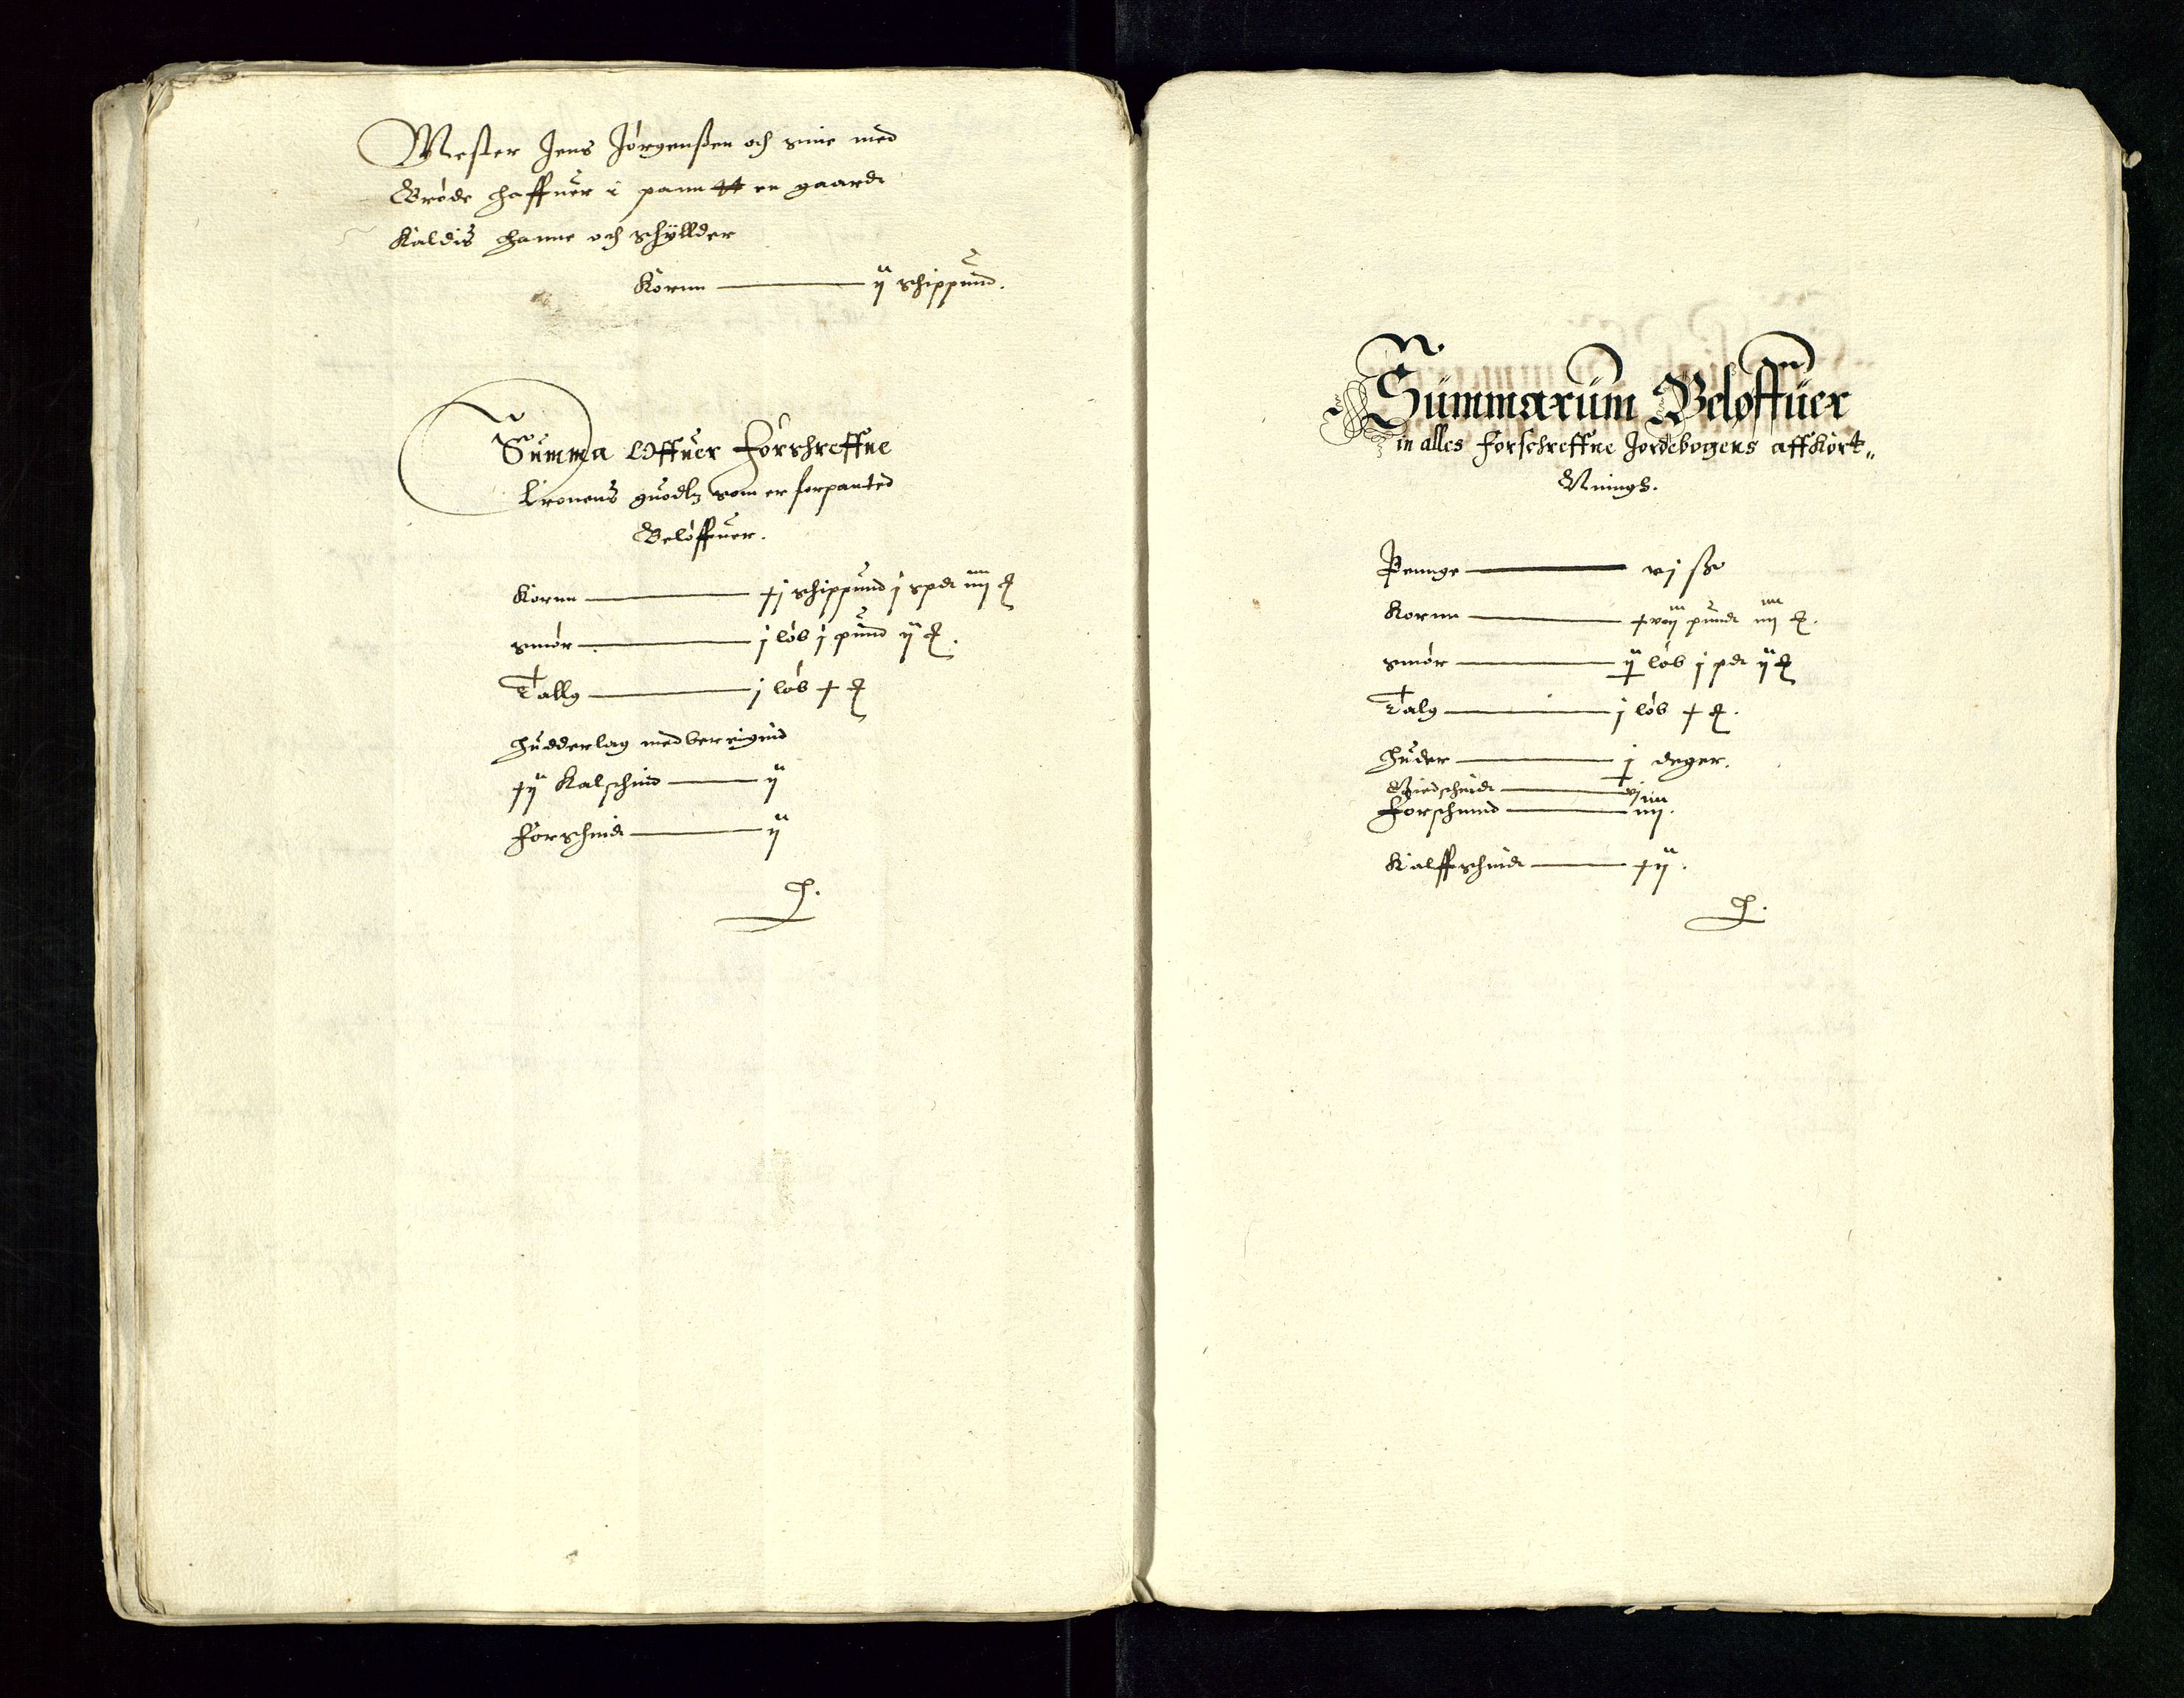 Mester Jens Jørgenßen och sinne med
Brøde haffuer i pantt en gaard
Kaldis Hanne och schyllder
Kornn ij schippund.
Summa Offuer Forschreffne
Kronens guodtz som er forpanted
Beløffuer.
Kornn xj schippund j spd iiij ℔
Smør j løb j pund ij ℔.
Tallg j løb x ℔
Hudderlag med beregnid
xij Kalschind ij
Forschind ij
Summarum Beløffuer
in alles forschreffne Jordebogens affkort„
Nings.
Pennge vj sß
Kornn xviij pund iiij ℔.
Smør ij løb j pd ij ℔
Talg j løb x ℔.
Huder j deger.
Giedschind vj
Forschinnd iiij.
Kalffschind xij.